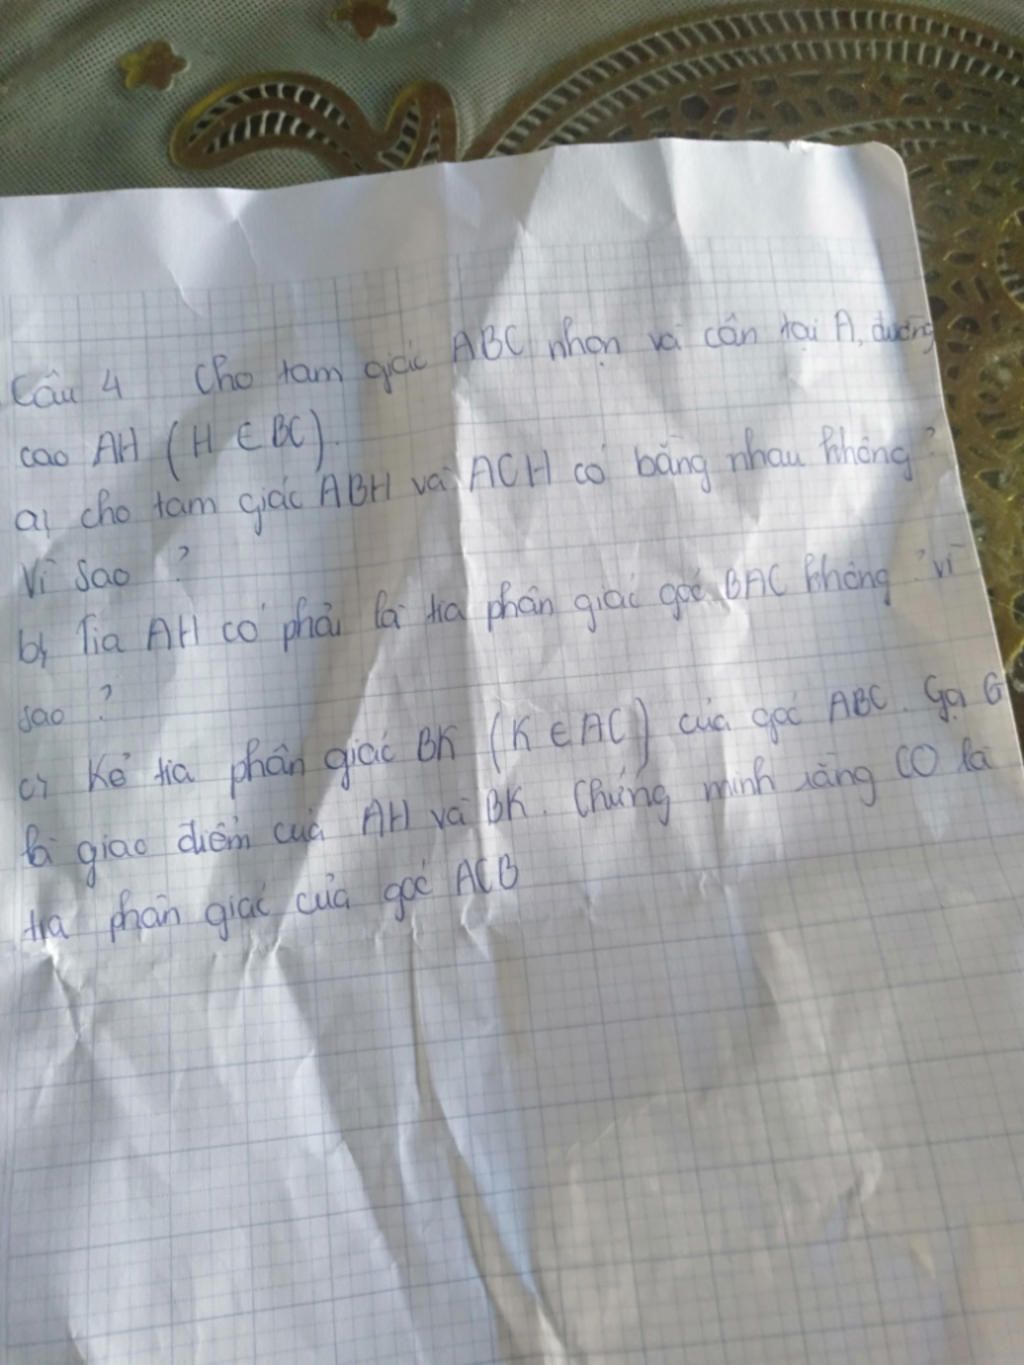 Câu 4 Cho tam giác ABC nhọn và cân tại A, đường
cao AH (H ∈ BC).
a, cho tam giác ABH và ACH có bằng nhau không?
Vì sao ?
b, Tia AH có phải là tia phân giác góc BAC không ? vì
sao ?
c, Kẻ tia phân giác BK (K ∈ AC) của góc ABC. Gọi O
là giao điểm của AH và BK. Chứng minh rằng CO là
tia phân giác của góc ACB